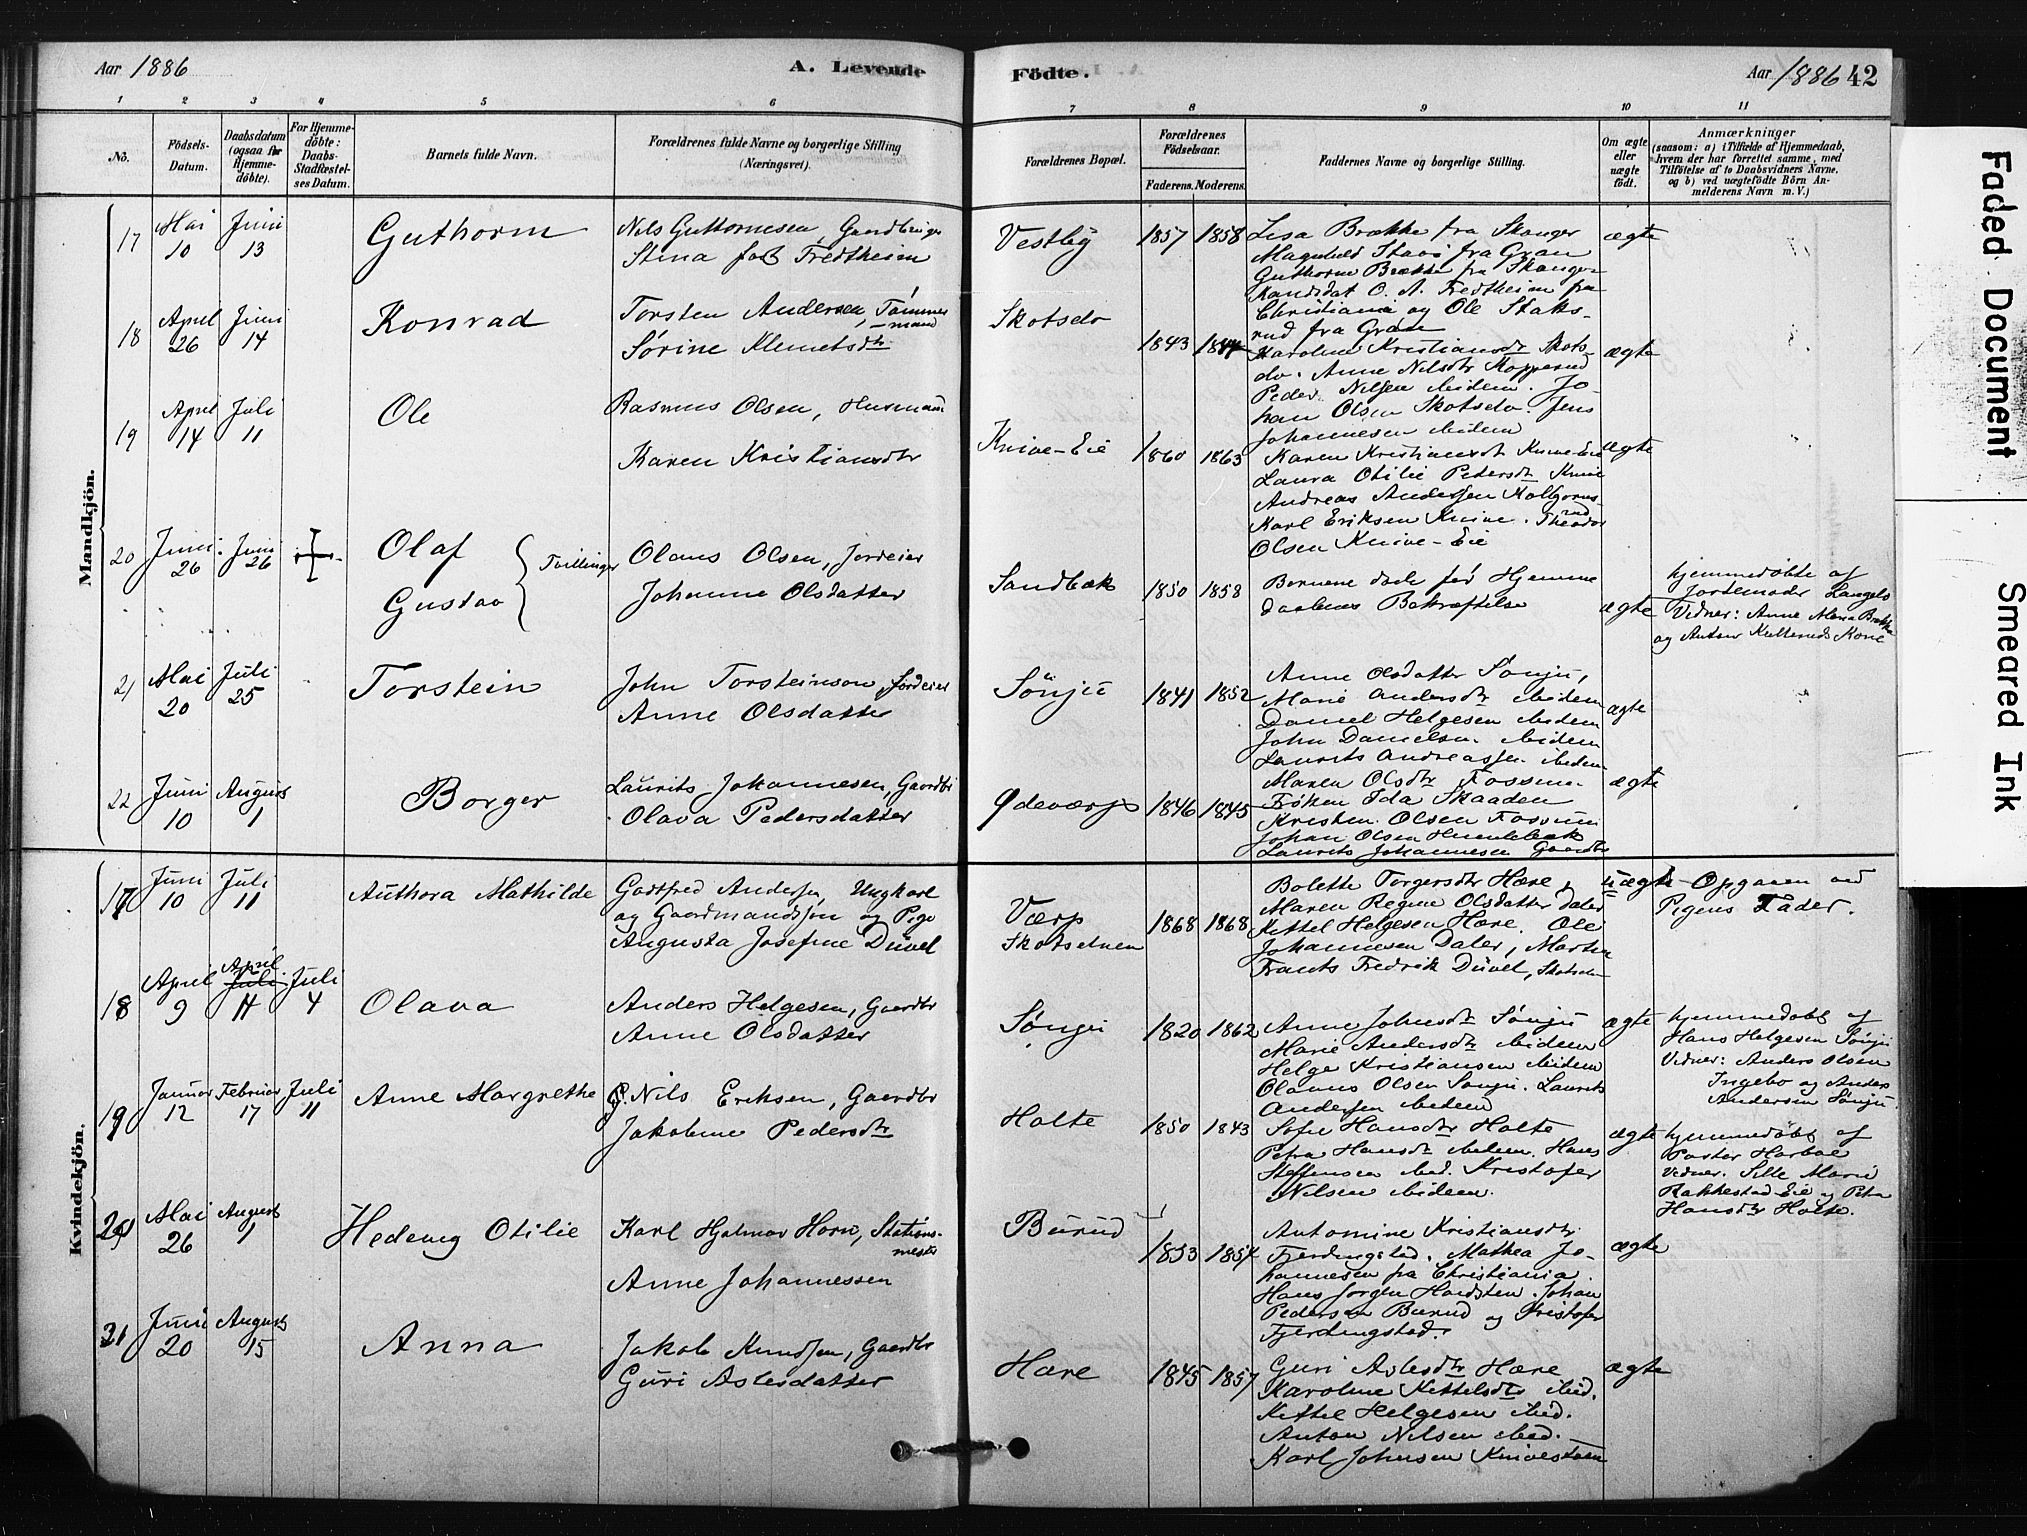 Aar 1886
A. Levende
Födte.
Aar 1886 42
1 2 3 4 5 6 7 8 9 10 11
No.
Födsels-Datum.
Daabsdatum (ogsaa for Hjemmedöbte).
For Hjemmedöbte: Daabs-Stadfæstelses Datum.
Barnets fulde Navn.
Forældrenes fulde Navne og borgerlige Stilling (Næringsvei).
Forældrenes Bopæl.
Forældrenes Födselsaar.
Faderens. Moderens.
Faddernes Navne og borgerlige Stilling.
Om ægte eller uægte födt.
Anmærkninger
(saasom: a) i Tilfælde af Hjemmedaab,
hvem der har forrettet samme, med
Tilföielse af to Daabsvidners Navne,
og b) ved uægtefödte Börn Anmelderens Navn m. V.)
Mandkjön.
17 Mai 10 Juni 13 Guthorm
Nils Guttormsen Gaardbruger
Stina født Fredtheim
Vestby 1857 1858
Lisa Brække fra Skauger
Maghild Staxs fra Gran
Guthorm Brække fra Skauger
Kandidat O. A. Fredtheim fra
Christiania og Ole Staks-
rud fra Gran
ægte
18 April 26 Juni 14 Konrad
Torsten Andersen, Tømmermand
Sørine Klemetsdtr
Skotselv 1843 1844
Karoline Kristiansdtr Skots-
elv. Anne Nilsdtr Kopperud
Peder Nilsen ibidem. Jo-
han Olsen Skotselv. Jens
Johannesen ibidem
ægte
19 April 14 Juli 11 Ole
Rasmus Olsen, Husmand
Karen Kristiansdtr
Knive-Eie 1860 1863
Karen Kristiansdt Knive-Eie
Laura Otilie Pedersdt Knive
Andreas Andersen Kolbgrensrud
Karl Eriksen Knive. Theodor
Olsen Knive-Eie
ægte
20 Juni 26 Juni 26 Olaf
Gustav
Tvillinger
Olaus Olsen, Jordeier
Johanne Olsdatter
Sandbæk 1850 1858
Børnene døde før Hjemme
daabens Bekræftelse
ægte
hjemmedøbte af
Jordemoder Langelv
Vidner: Anne Maria Brække
og Anton Kulteruds Kone
21 Mai 20 Juli 25 Torstein
John Torsteinson, Jordeier
Anne Olsdatter
Sønju 1841 1852
Anne Olsdatter Sønju,
Marie Andersdtr ibidem
Daniel Helgesen ibidem
John Danielsen ibidem
Laurits Andreassen ibidem
ægte
22 Juni 10 August 1 Borger
Laurits Johannesen, Gaardbr
Olava Pedersdatter
Ødeværp 1846 1845
Maren Olsdtr Fossum.
Frøken Ida Skaaden
Kristen Olsen Fossum
Johan Olsen Humlebæk
Laurits Johannesen Gaardbr
ægte
Kvindekjön.
17 Juni 10 Juli 11 Authora Mathilde
Gottfred Andersen, Ungkarl
og Gaardmandssøn og Pige
Augusta Josefine Düvel
Værp
Skotselven
1868 1868
Bolette Torgersdtr Hære,
Maren Regine Olsdatter Daler
Kittel Helgesen Hære. Ole
Johannesen Daler, Martin
Frants Fredrik Düvel, Skotselv
uægte
Opgaven ved
Pigens Fader.
18 April 9 April 11 Juli 4 Olava
Anders Helgesen, Gaardbr
Anne Olsdatter
Sønju 1820 1862
Anne Johnsdt Sønju
Marie Andersdtr ibidem
Helge Kristiansen ibidem
Olaus Olsen Sønju. Laurits
Andersen ibidem
ægte
hjemmedøbt af
Hans Helgesen Sønju
Vidner: Anders Olsen
Ingebo og Anders
Andersen Sønju
19 Januar 12 Februar 17 Juli 11 Anne Margrethe
Nils Eriksen, Gaardbr
Jakobine Pedersdtr
Holte 1850 1843
Sofie Hansdtr Holte
Petra Hansdt ibidem. Hans
Steffensen ibid. Kristofer
Nilsen ibidem.
ægte
hjemmedøbt af
Pastor Harboe
Vidner. Sille Marie
Rakkestad-Eie og Petra
Hansdtr Holte.
20 Mai 26 August 1 Hedevig Otilie
Karl Hjalmar Horn, Stationsmester
Anne Johannessen
Burud 1853 1854
Antomine Kristiansdtr
Fjerdingstad. Mathea Jo-
hannesen fra Christiania.
Hans Jørgen Hardsten. Johan
Pedersen Burud og Kristofer
Fjerdingstad.
ægte
21 Juni 20 August 15 Anna
Jakob Knudsen, Gaardbr
Guri Aslesdatter
Hære 1845 1857
Guri Aslesdtr Hære
Karoline Kittelsdtr ibid.
Kittel Helgesen ibid.
Anton Nilsen ibid.
Karl Johnsen Knivestøen
ægte
Faded Document
Smeared Ink